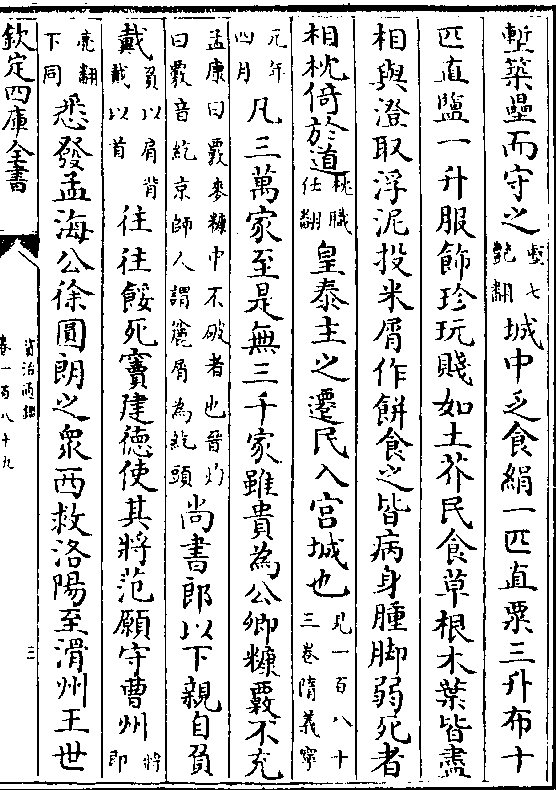 塹築壘而守之塹七艶翻城中乏食絹一匹直粟三升布十
匹直鹽一升服飾珍玩賤如土芥民食草根木葉皆盡
相與澄取浮泥投米屑作餅食之皆病身腫脚弱死者
相枕倚於道枕職任翻皇泰主之遷民入宫城也見一百八十三卷隋義寧
元年四月凡三萬家至是無三千家雖貴為公卿糠覈不充
孟康曰覈麥糠中不破者也晉灼曰覈音紇京師人謂麤屑為紇頭尚書郎以下親自負
戴負以肩背戴以首往往餒死竇建德使其將范願守曹州將即
亮翻下同悉發孟海公徐圓朗之衆西救洛陽至滑州王世
欽定四庫全書
資治通鑑
卷一百八十九
三